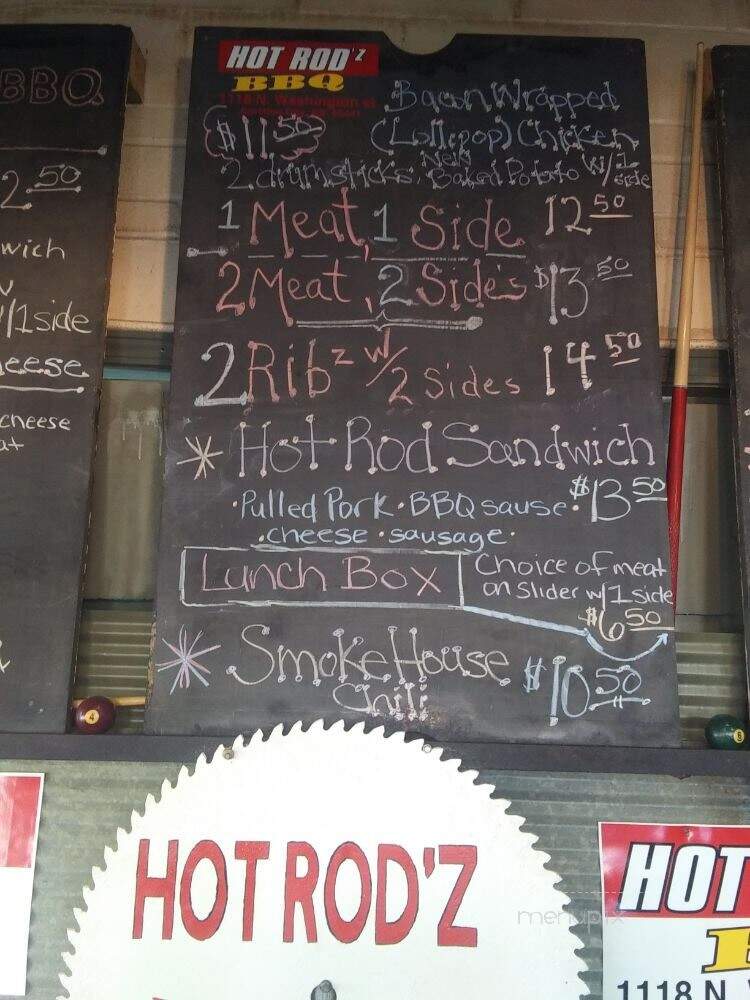 BBQ
2.50
wich
w/1side
cheese
HOT ROD'Z
BBQ
1118 N. Washington st
Bacon Wrapped
$11.50 (Lollipop) Chicken
2 drumsticks, New Baked Potato w/1 side
1 Meat, 1 Side 12.50
2 Meat, 2 Side's $13.50
2 Ribz w/ 2 Sides 14.50
* Hot Rod Sandwich
•Pulled Pork •BBQ sause• $13.50
•cheese •sausage•
Lunch Box
Choice of meat
on Slider w/ 1 side
$6.50
* SmokeHouse
Chili $10.50
4
6
HOT ROD'Z
HOT
1118 N.
menupix